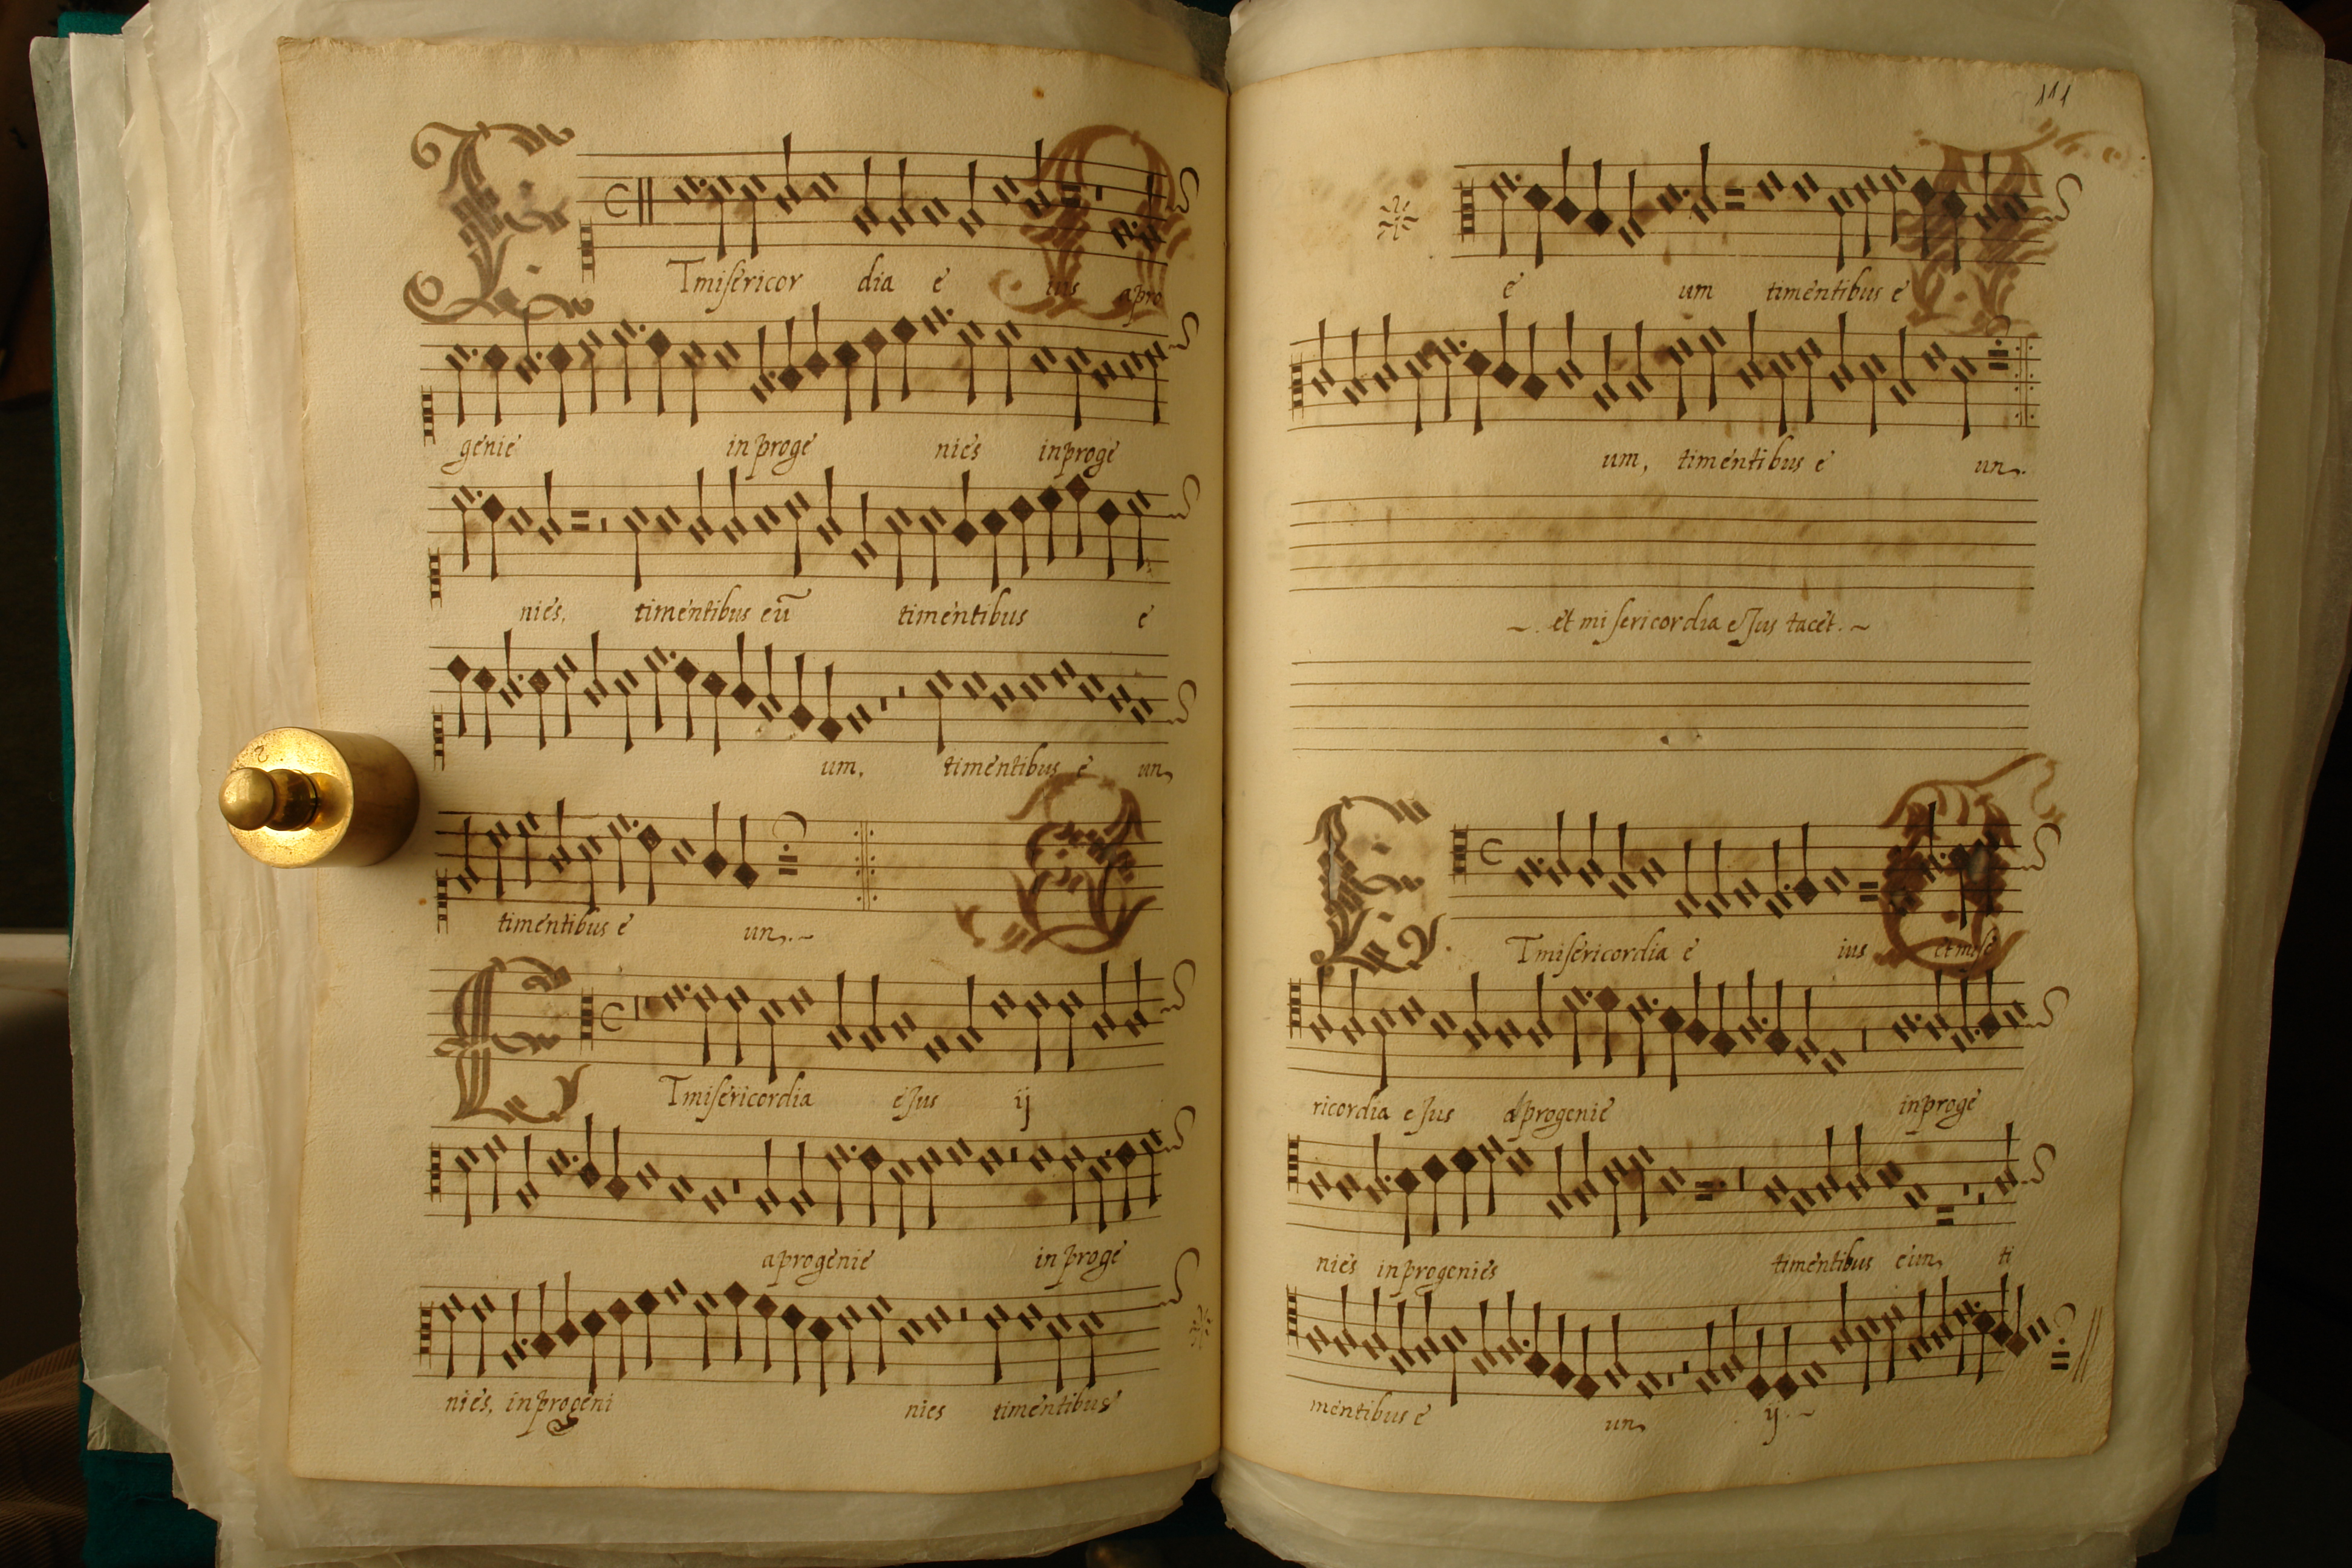 Et misericor dia e ius apro
genie in proge nies in proge
nies, timentibus eũ timentibus e
um, timentibus e um
timentibus e um.~
Et misericordia eJus ij
aprogenie in proge
nies, in progeni nies timentibus
111
e um timentibus e
um, timentibus e um.
~. et misericordia eJus tacet. ~
Et misericordia e ius et mise
ricordia eJus aprogenie in proge
nies in progenies timentibus eum ti
mentibus e um ij. ~